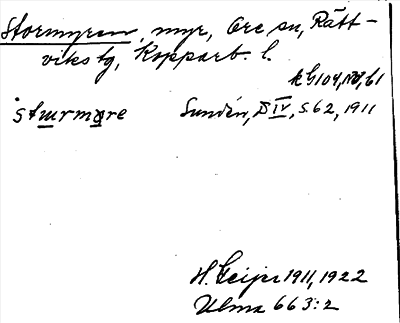 Stormyren, myr, Ore sn, Rätt-
viks tg, Kopparb. l.
kG104,
sturmyre Sundén, D IV, s. 62, 1911
H. Geijer 1911, 1922
Ulma 663:2